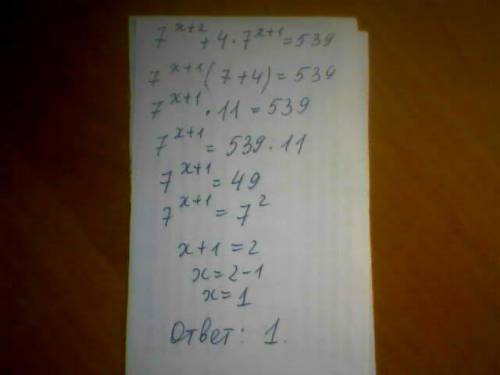 7^{x+2} + 4 · 7^{x+1} = 539
7^{x+1} (7+4) = 539
7^{x+1} · 11 = 539
7^{x+1} = 539 · 11
7^{x+1} = 49
7^{x+1} = 7^2
x+1 = 2
x = 2-1
x = 1
Ответ: 1.